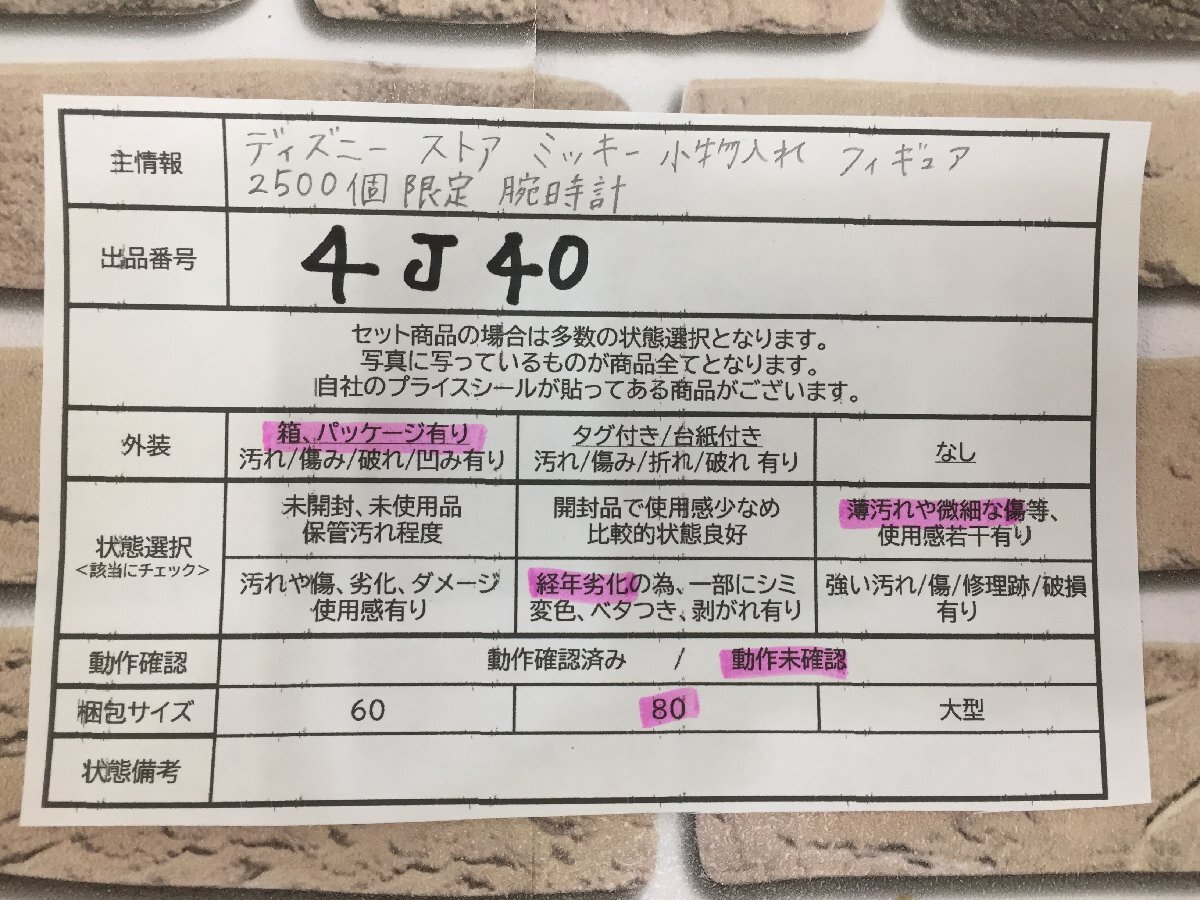 主情報
ディズニー ストア ミッキー 小物入れ フィギュア
2500個 限定 腕時計
出品番号
4J40
セット商品の場合は多数の状態選択となります。
写真に写っているものが商品全てとなります。
自社のプライスシールが貼ってある商品がございます。
外装
箱、パッケージ有り
汚れ/傷み/破れ/凹み有り
タグ付き/台紙付き
汚れ/傷み/折れ/破れ 有り
なし
状態選択
<該当にチェック>
未開封、未使用品
保管汚れ程度
開封品で使用感少なめ
比較的状態良好
薄汚れや微細な傷等、
使用感若干有り
汚れや傷、劣化、ダメージ
使用感有り
経年劣化の為、一部にシミ
変色、ベタつき、剥がれ有り
強い汚れ/傷/修理跡/破損
有り
動作確認
動作確認済み / 動作未確認
梱包サイズ
60
80
大型
状態備考